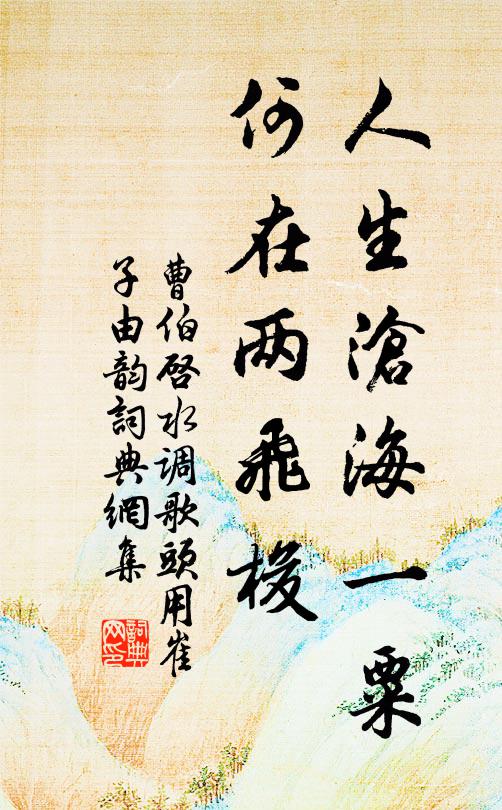 人生滄海一粟
何在两飛梭
曹伯啓水调歌頭用崔
子由韵詞典網集
詞典网印